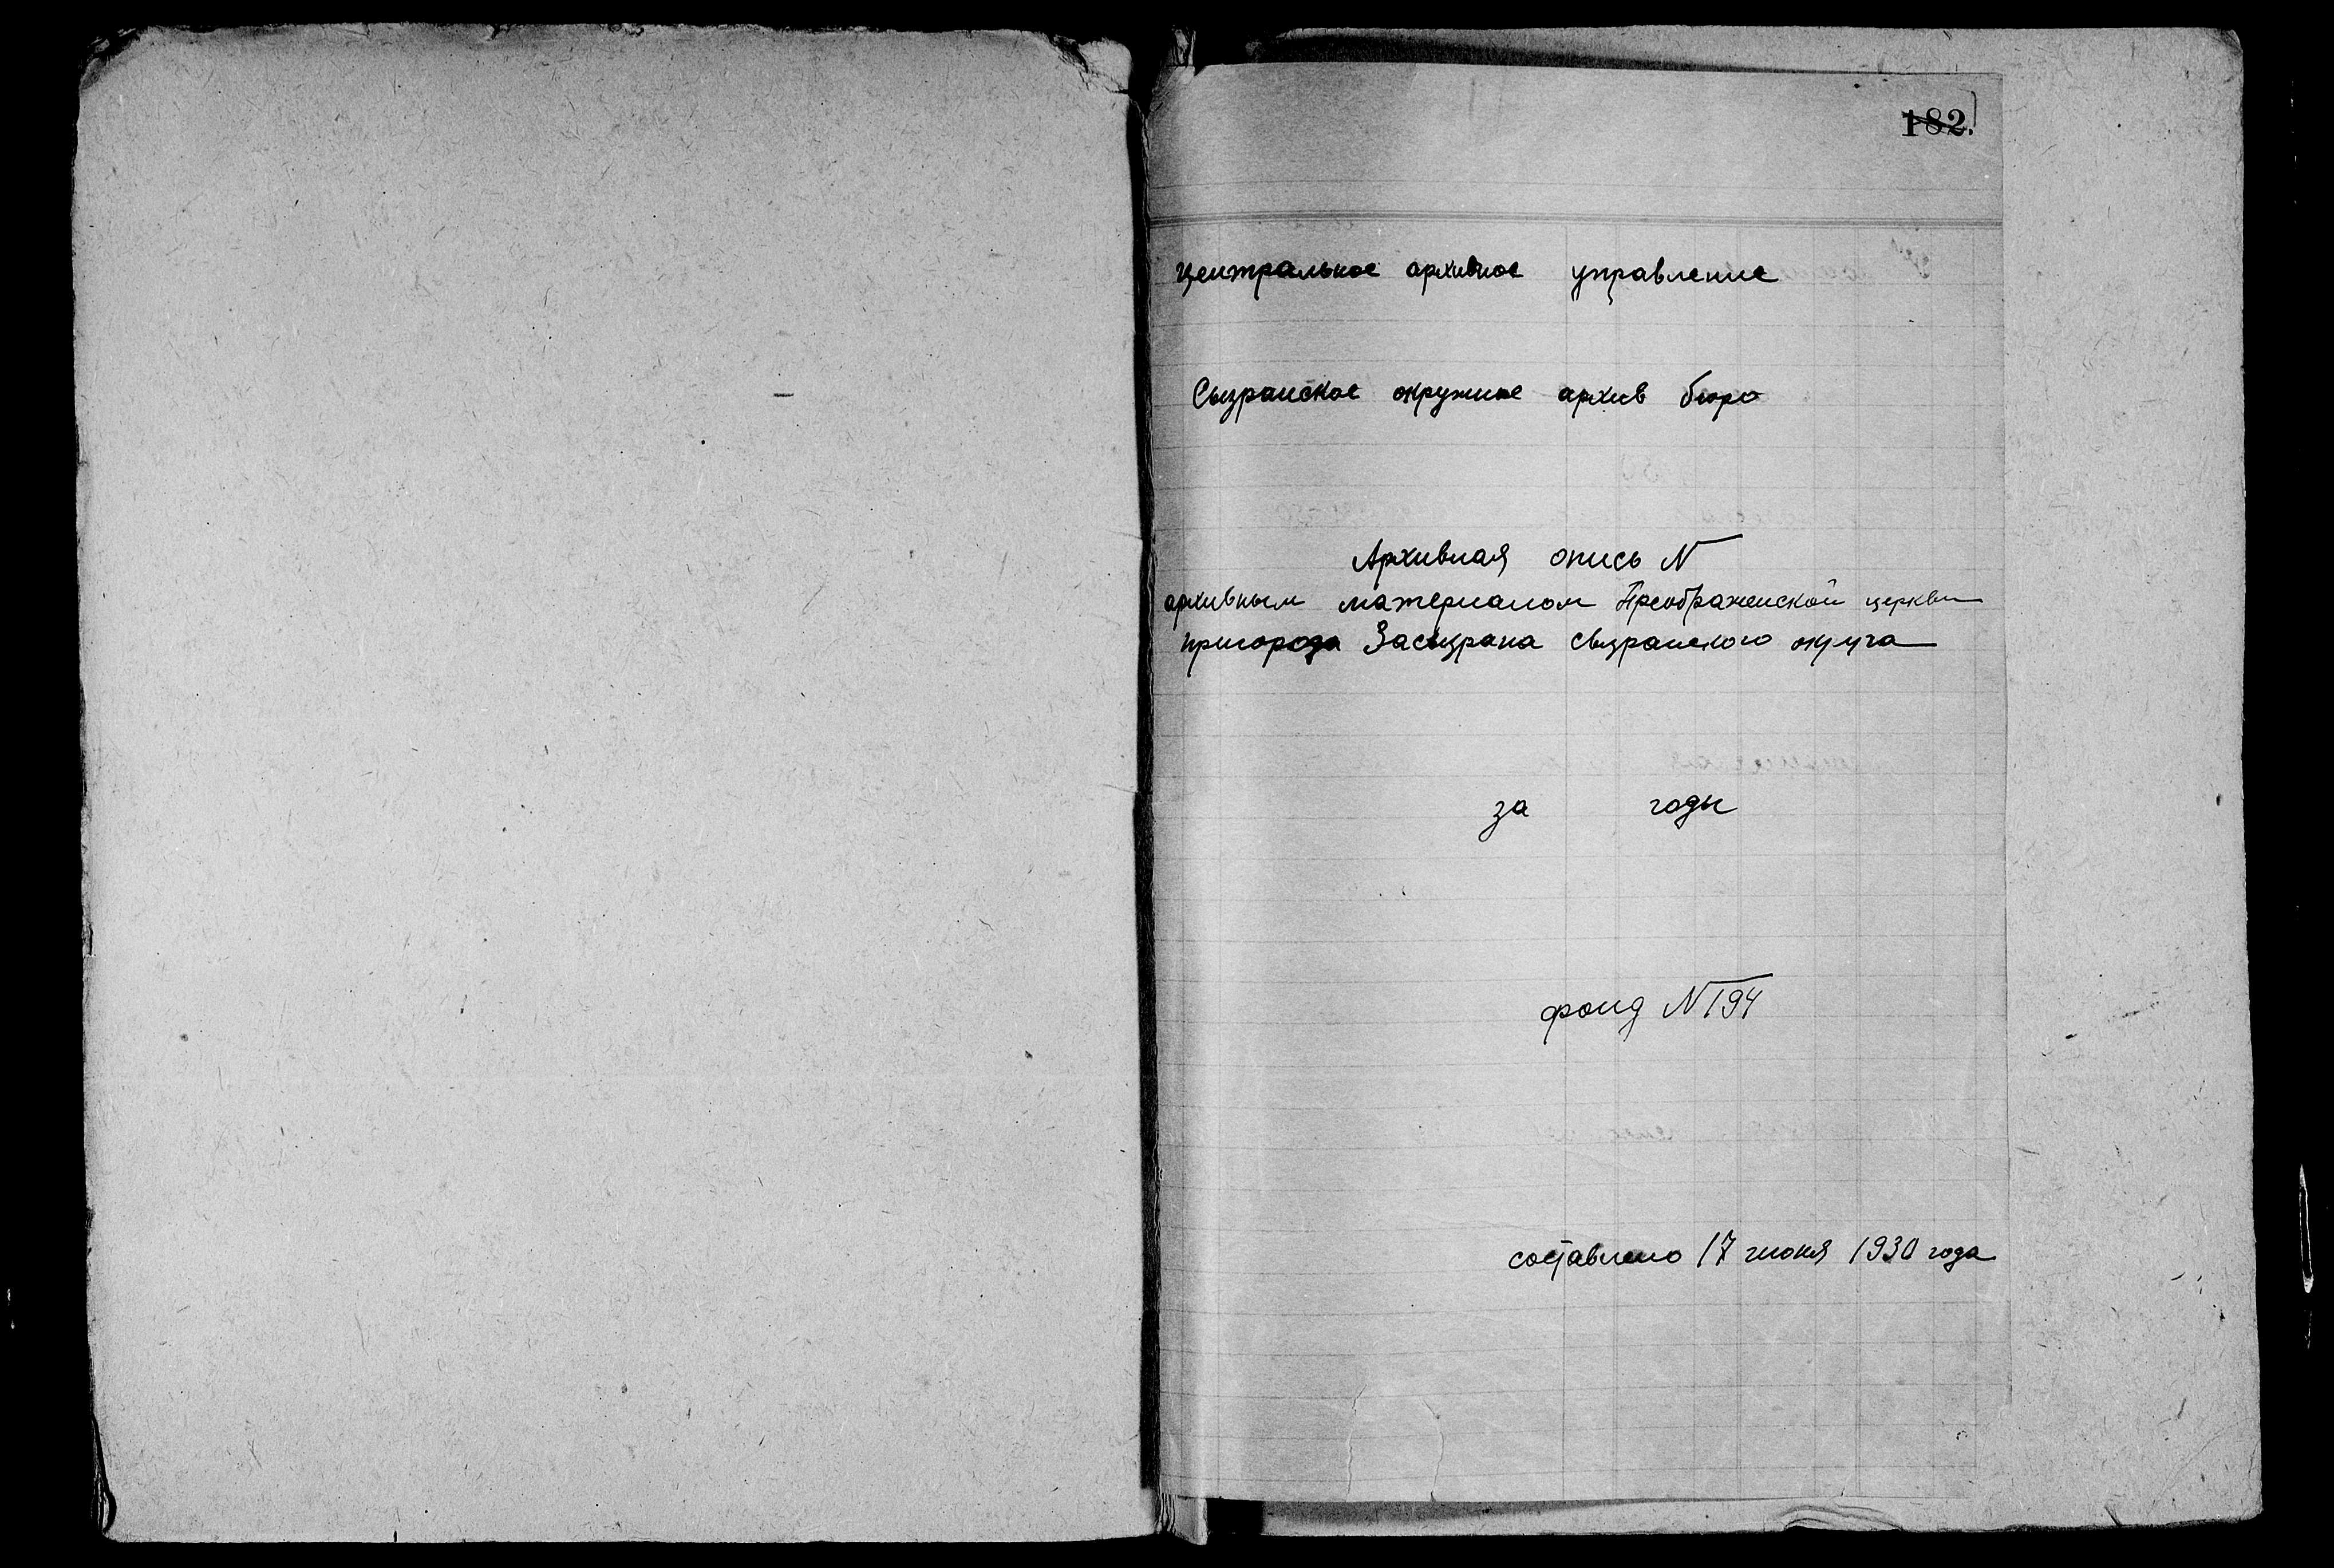 182.
Центральное архивное управление
Сызранское окружное архив бюро
Архивная опись N
архивным материалом Преображенской церкви
пригорода Засызрана Сызранского округа
за годы
фонд N 194
составлено 17 июня 1930 года